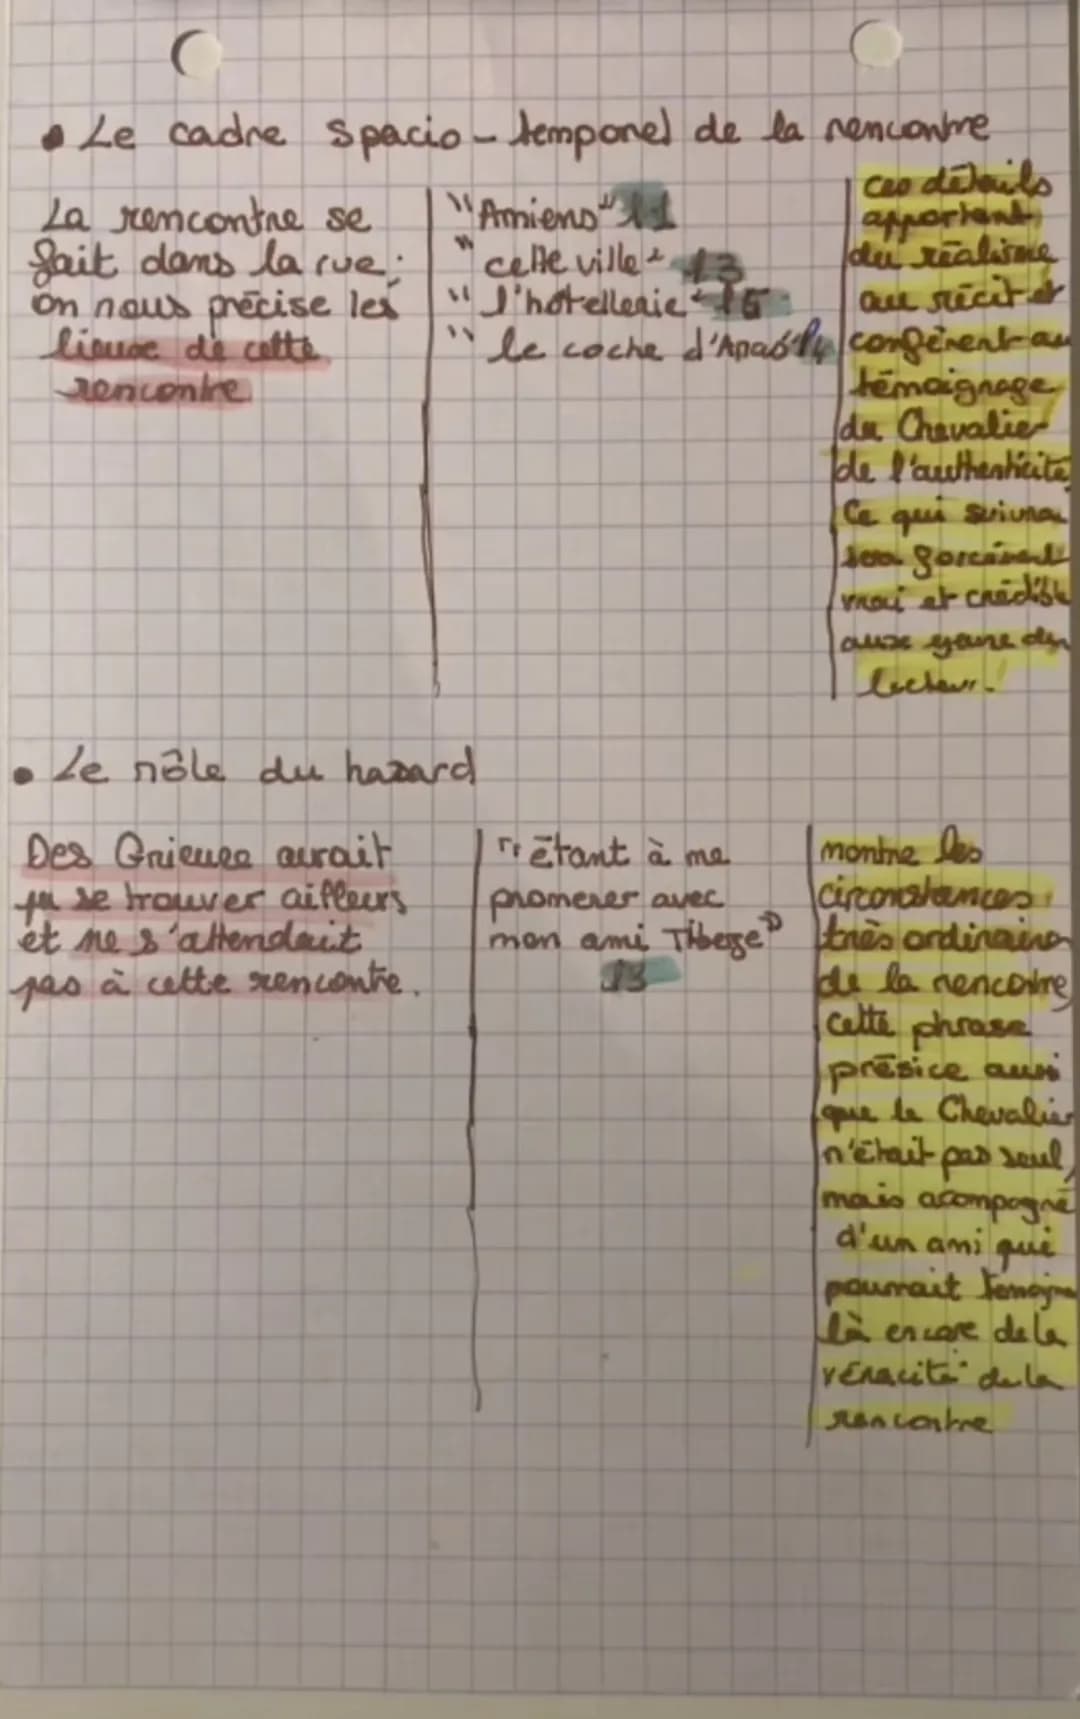 • Le cadre spacio-temporel de la rencontre
La rencontre se
fait dans la rue :
on nous précise les
lieux de cette
rencontre
"Amiens" l1
"cette ville" l3
"l'hotellerie" l5
"le coche d'Aras" l4
ces détails
apportent
du réalisme
au récit et
confèrent au
témoignage
du Chevalier
de l'authenticité
Ce qui suivra
sera forcément
vrai et crédible
aux yeux du
lecteur.
• Le rôle du hazard
Des Grieux aurait
pu se trouver ailleurs
et ne s'attendait
pas à cette rencontre.
"étant à me
promener avec
mon ami Tiberge"
l3
montre les
circonstances
très ordinaires
de la rencontre,
cette phrase
présice aussi
que le Chevalier
n'était pas seul,
mais acompagné
d'un ami qui
pourrait temoigner
là encore de la
véracité de la
rencontre